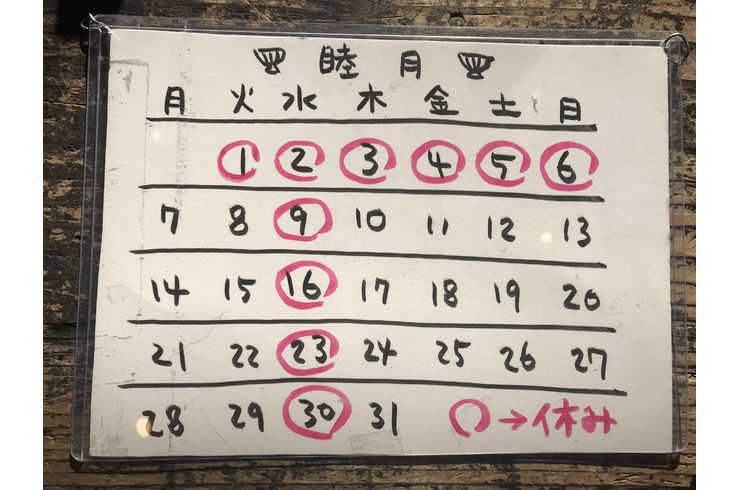 睦月
月 火 水 木 金 土 日
1 2 3 4 5 6
7 8 9 10 11 12 13
14 15 16 17 18 19 20
21 22 23 24 25 26 27
28 29 30 31 ○→休み